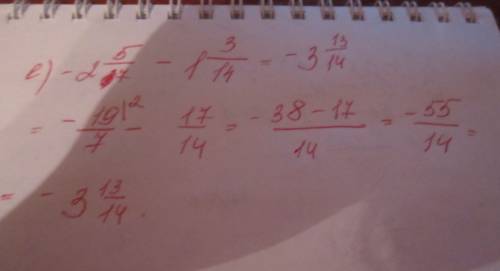 е) -2 5/7 - 1 3/14 = -3 13/14
= - 19|²/7 - 17/14 = - 38 - 17/14 = -55/14 =
= - 3 13/14.